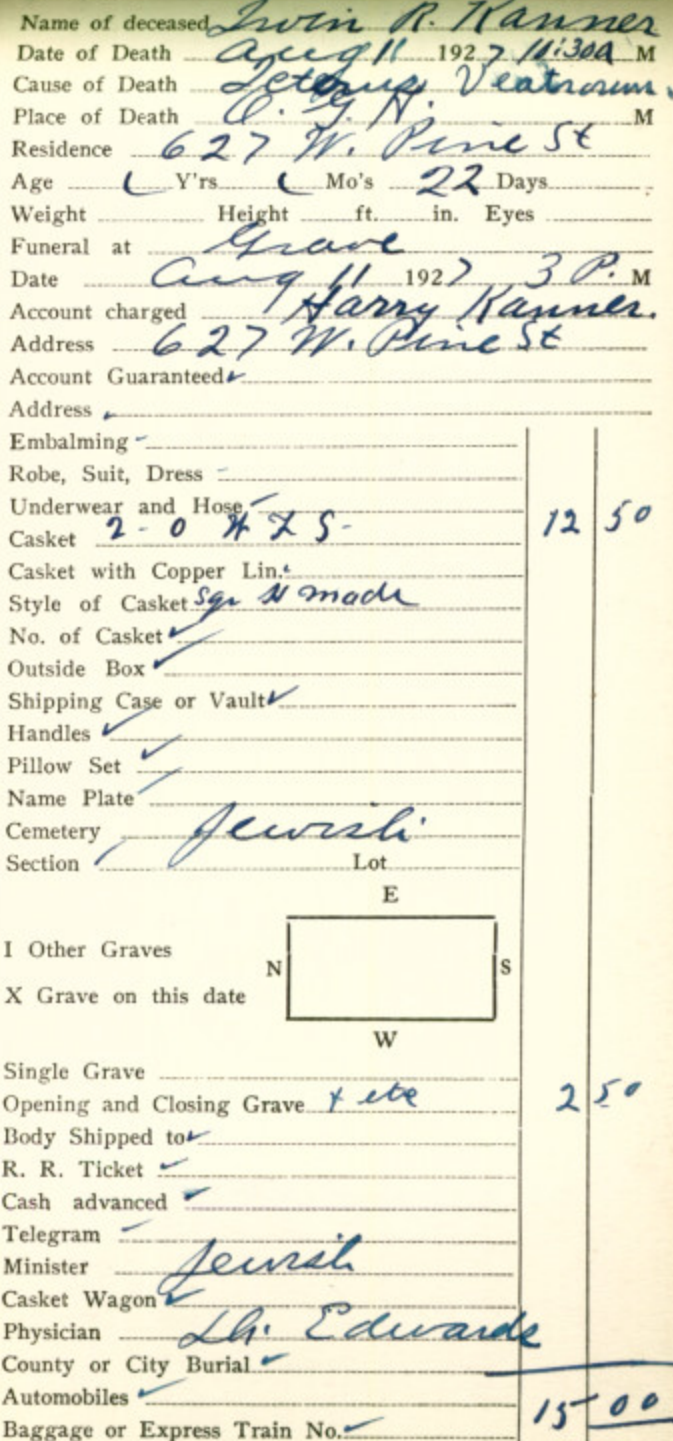 Name of deceased Irvin R. Kanner
Date of Death Aug 11 1927 11:30A M
Cause of Death Icterus
Place of Death O. G. H. M
Residence 627 W. Pine St
Age Y'rs Mo's 22 Days
Weight Height ft. in. Eyes
Funeral at Grave
Date Aug 11 1927 3 P. M
Account charged Harry Kanner.
Address 627 W. Pine St
Account Guaranteed
Address
Embalming
Robe, Suit, Dress
Underwear and Hose
Casket 2-0 12 50
Casket with Copper Lin.
Style of Casket made
No. of Casket
Outside Box
Shipping Case or Vault
Handles
Pillow Set
Name Plate
Cemetery Jewish
Section Lot
E
I Other Graves
N S
X Grave on this date
W
Single Grave
Opening and Closing Grave + etc 2 50
Body Shipped to
R. R. Ticket
Cash advanced
Telegram
Minister Jewish
Casket Wagon
Physician Dr. Edwards
County or City Burial
Automobiles 15 00
Baggage or Express Train No.